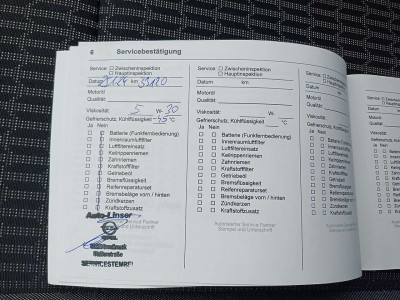 6 Servicebestätigung
Service: Zwischeninspektion
Hauptinspektion
Datum km
Motoröl
Qualität:
Viskosität: 5 W- 30
Gefrierschutz, Kühlflüssigkeit °C
Ja Nein
Batterie (Funkfernbedienung)
Innenraumluftfilter
Luftfiltereinsatz
Keilrippenriemen
Zahnriemen
Kraftstofffilter
Getriebeöl
Bremsflüssigkeit
Reifenreparaturset
Bremsbeläge vorn / hinten
Zündkerzen
Kraftstoffzusatz
Auto-Linser
SERVICESTEMPEL
Service: Zwischeninspektion
Hauptinspektion
Datum km
Motoröl
Qualität:
Viskosität: W-
Gefrierschutz, Kühlflüssigkeit °C
Ja Nein
Batterie (Funkfernbedienung)
Innenraumluftfilter
Luftfiltereinsatz
Keilrippenriemen
Zahnriemen
Kraftstofffilter
Getriebeöl
Bremsflüssigkeit
Reifenreparaturset
Bremsbeläge vorn / hinten
Zündkerzen
Kraftstoffzusatz
Autorisierter Service Partner
Stempel und Unterschrift
Service:
Datum
Motoröl
Qualität:
Viskosität:
Gefrierschutz
Ja Nein